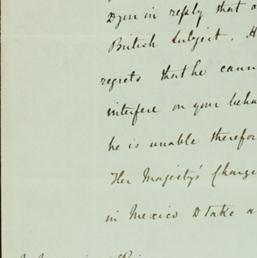 you in reply that a
British Subject. H
regrets that he cann
interfere on your beha
he is unable therefor
Her Majesty's Charge
in Mexico to take a